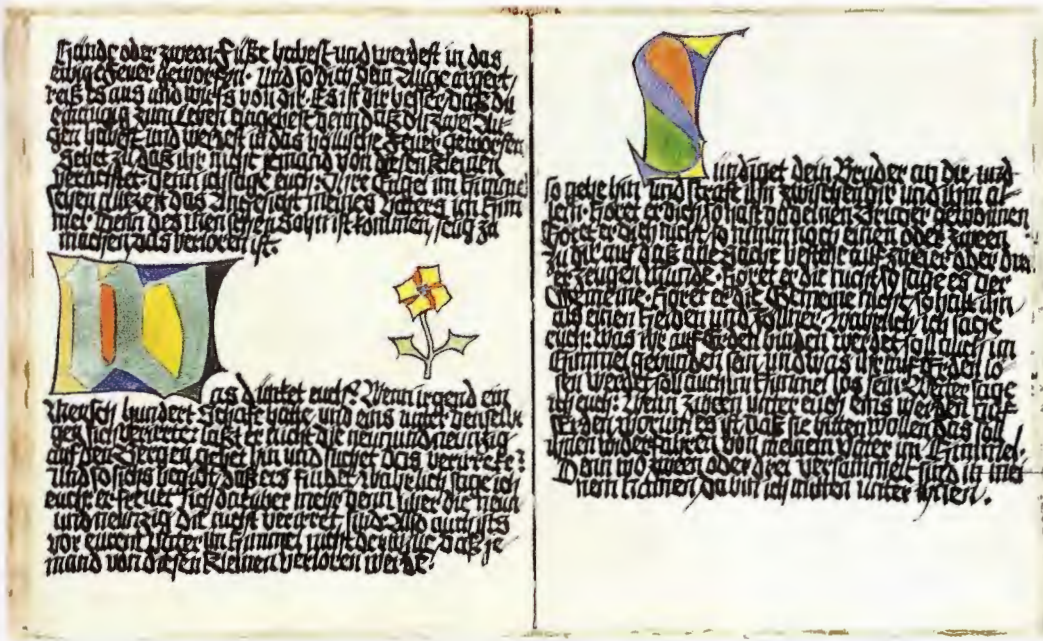 Hände oder zween Füße habest und werdest in das
ewige Feuer geworfen. Und so dich dein Auge ärgert,
reiß es aus und wirfs von dir. Es ist dir besser, daß du
einäugig zum Leben eingehest, denn daß du zwei Au-
gen habest und werdest in das höllische Feuer geworfen.
Sehet zu, daß ihr nicht jemand von diesen Kleinen
verachtet. Denn ich sage euch: Ihre Engel im Himmel
sehen allezeit das Angesicht meines Vaters im Him
mel. Denn des Menschen Sohn ist kommen, selig zu
machen, das verloren ist.
Was dünket euch? Wenn irgend ein
Mensch hundert Schafe hätte und eins unter denselbi
gen sich verirrete: läßt er nicht die neunundneunzig
auf den Bergen, gehet hin und suchet das verirrete?
Und so sichs begibt, daß ers findet, wahrlich, sage ich
euch, er freuet sich darüber mehr denn über die neun
und neunzig, die nicht verirret sind. Also auch ists
vor eurem Vater im Himmel nicht der Wille, daß je
mand von diesen Kleinen verloren werde.
Sündiget dein Bruder an dir, und
so gehe hin und strafe ihn zwischen dir und ihm al-
lein. Höret er dich, so hast du deinen Bruder gewonnen.
Höret er dich nicht, so nimm noch einen oder zween
zu dir, auf daß alle Sache bestehe auf zweier oder drei
er Zeugen Munde. Höret er die nicht, so sage es der
Gemeine. Höret er die Gemeine nicht, so halt ihn
als einen Heiden und Zöllner. Wahrlich, ich sage
euch: was ihr auf Erden binden werdet, soll auch im
Himmel gebunden sein, und was ihr auf Erden lö
sen werdet, soll auch im Himmel los sein. Weiter sage
ich euch: Wenn zween unter euch eins werden auf
Erden, worum es ist, daß sie bitten wollen, das soll
ihnen widerfahren von meinem Vater im Himmel.
Denn wo zween oder drei versammelt sind in mei
nem Namen, da bin ich mitten unter ihnen.